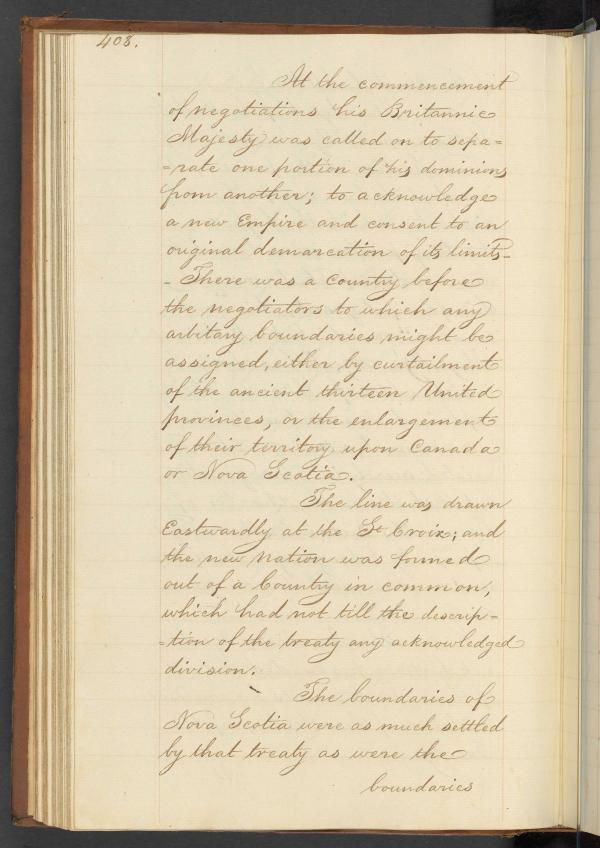 408.
At the commencement
of negotiations his Britannic
Majesty was called on to sepa=
=rate one portion of his dominions
from another; to acknowledge
a new Empire and consent to an
original demarcation of its limits_
_ There was a country before
the negotiators to which any
arbitary boundaries might be
assigned, either by curtailment
of the ancient thirteen United
provinces, or the enlargement
of their territory upon Canada
or Nova Scotia.
The line was drawn
Eastwardly at the St Croix; and
the new nation was formed
out of a Country in common,
which had not till the descrip=
=tion of the treaty any acknowledged
division.
The boundaries of
Nova Scotia were as much settled
by that treaty as were the
boundaries